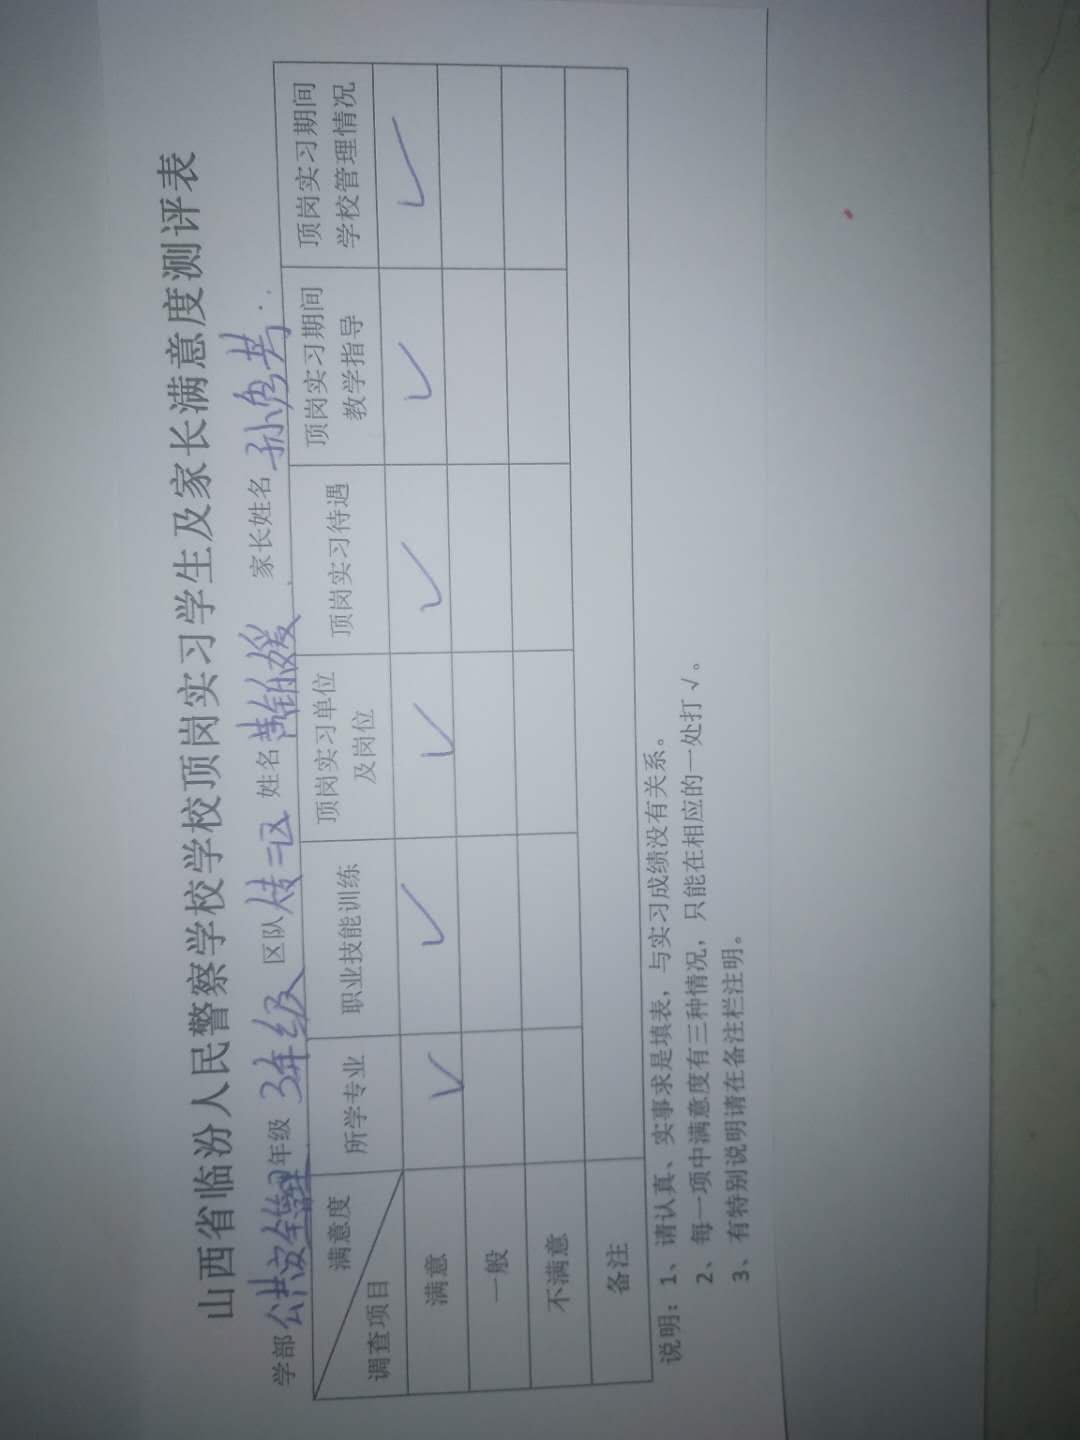 山西省临汾人民警察学校学校顶岗实习学生及家长满意度测评表
学部 公共安全管理 年级 3年级 区队 技二区 姓名 黄钰媛 家长姓名 孙秀芳
满意度 所学专业 职业技能训练 顶岗实习单位及岗位 顶岗实习待遇 顶岗实习期间教学指导 顶岗实习期间学校管理情况
调查项目
满意 ✓ ✓ ✓ ✓ ✓ ✓
一般
不满意
备注
说明：1、请认真、实事求是填表，与实习成绩没有关系。
2、每一项中满意度有三种情况，只能在相应的一处打√。
3、有特别说明请在备注栏注明。